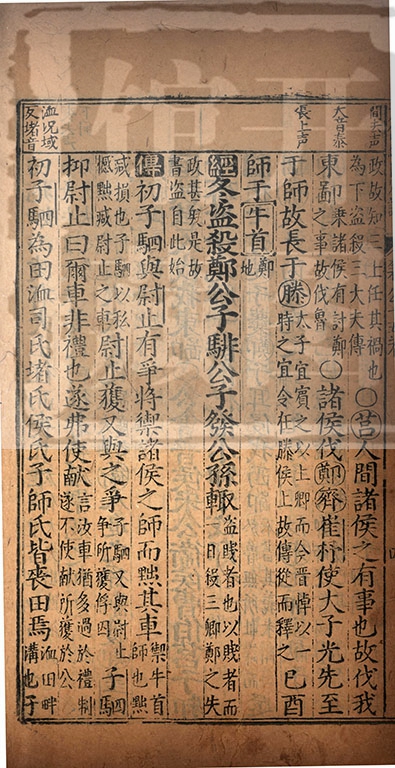 間去声
政故知三士任其禍也為下盜殺三大夫傳○莒人間諸侯之有事也故伐我
大音泰
東鄙乗諸侯有討鄭之事故伐魯○諸侯伐鄭齊崔杼使大子光先至
長上声
于師故長于滕大子宜賓之以上卿而今晉悼以一時之宜令在滕侯上故傳從而釋之己酉
師于牛首鄭地
經冬盜殺鄭公子騑公子發公孫輒盜賤者也以賤者而一日殺三卿鄭之失
政甚矣是故書盜自此始
傳初子駟與尉止有爭將禦諸侯之師而黜其車禦牛首師也黜
減損也子駟以私憾黜減尉止之車尉止獲又與之爭子駟又與尉止爭所獲俘囚子駟
抑尉止曰爾車非禮也遂弗使献言汝車猶多過於禮制遂不使献所獲於公
洫况域反堵音
初子駟為田洫司氏堵氏侯氏子師氏皆喪田焉洫田畔溝也子